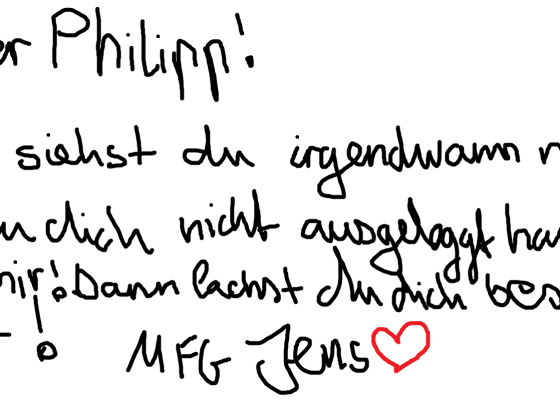 er Philipp!
siehst du irgendwann
du dich nicht ausgeloggt
mir! Dann lachst du dich
! MFG Jens